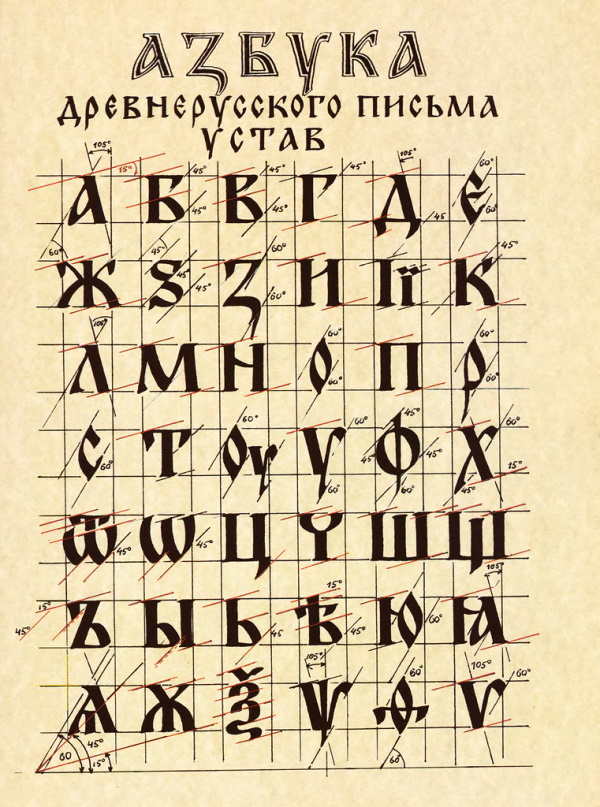 АЗБУКА
ДРЕВНЕРУССКОГО ПИСЬМА
УСТАВ
105° 15° 45° 45° 45° 105° 60°
А Б В Г Д Є
45° 45° 45 60°
60° 45° 60° 45°
Ж Ѕ З И І Ї К
45 45° 60°
105° 60° 60°
Л М Н О П Р
60° 60°
60° 60° 45° 60°
С Т Оу У Ф Х
60° 45° 45° 15°
60° 60° 45°
Ѿ Ѡ Ц Ч Ш Щ
45° 45°
15° 15° 105°
Ъ Ы Ь Ѣ Ю Ꙗ
45° 45 45° 60°
105° 60° 105° 60°
Ѧ Ѫ Ѯ Ѱ Ѳ Ѵ
60 45° 15° 60°